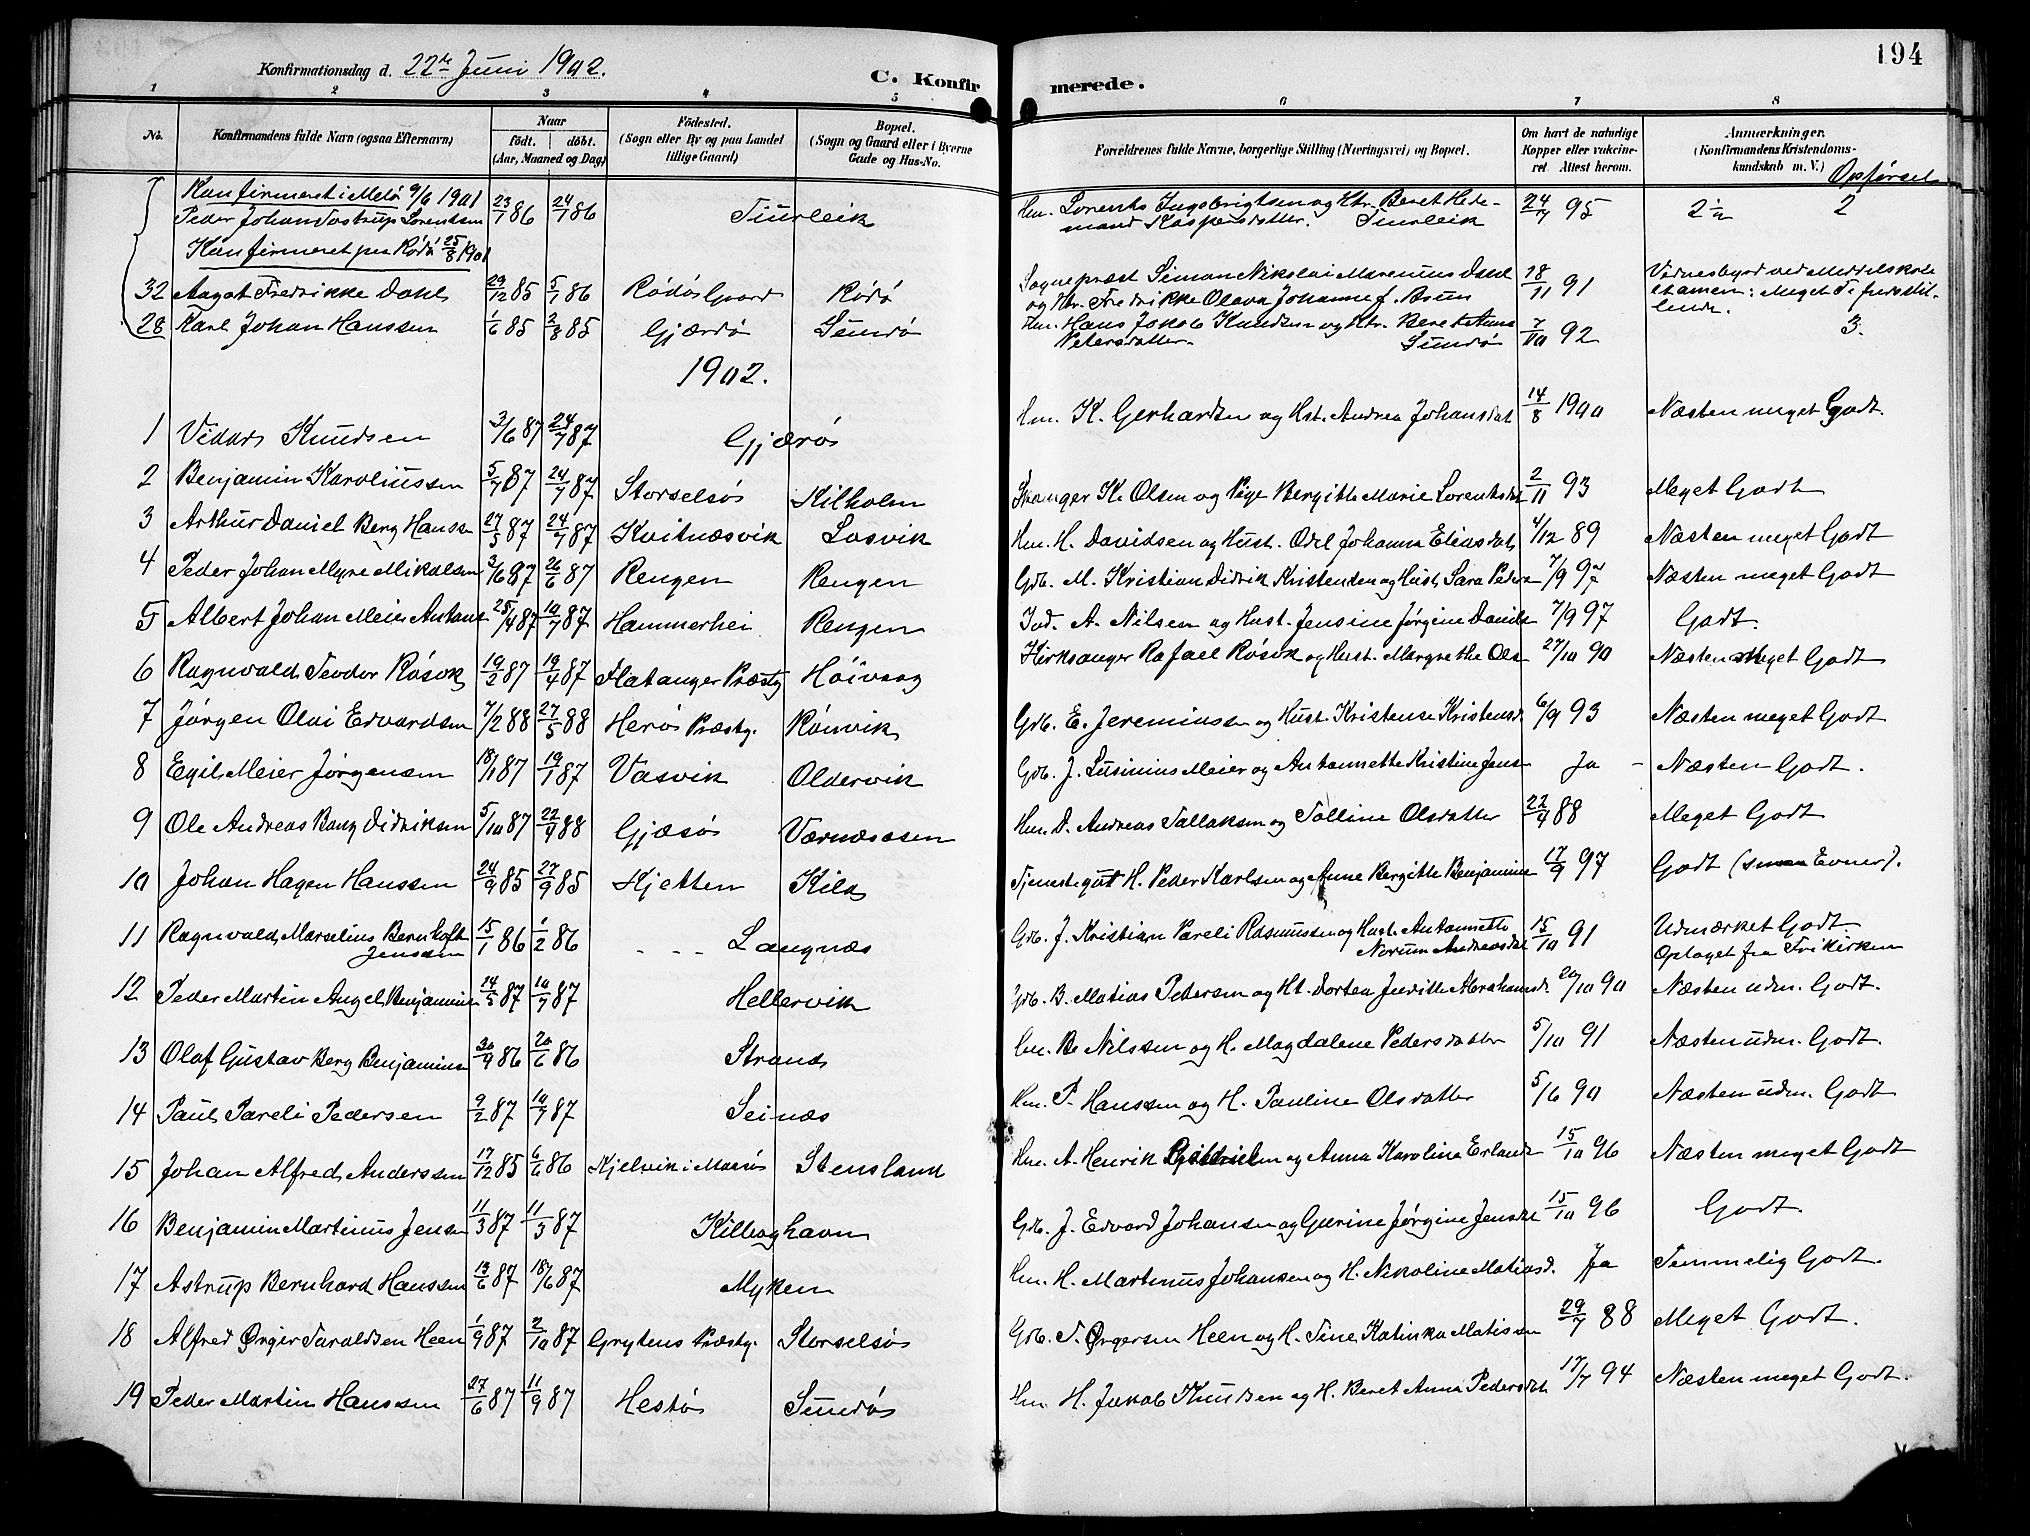 194
Konfirmationsdag d. 22de Juni 1902.
C. Konfirmerede.
1 2 3 4 5 6 7 8
No. Konfirmandens fulde Navn (ogsaa Efternavn) Naar født. døbt. (Aar, Maaned og Dag) Fødested. (Sogn eller By og paa Landet tillige Gaard) Bopæl. (Sogn og Gaard eller i Byerne Gade og Hus-No. Forældrenes fulde Navne, borgerlige Stilling (Næringsvei) og Bopæl. Om havt de naturlige Kopper eller vaccineret Attest herom. Anmærkninger. (Konfirmandens Kristendomskundskab m. V.) Opførsel
Konfirmeret i Melø 9/6 1901
Peder Johan Tostrup Lorentsen 23/7 86 24/7 86 Hm. Lorents Ingebrigtsen og Htr. Beret Hedemand Kaspersdatter. 24/7 95 2½ 2
Konfirmeret paa Rødø 25/8 1901
32 Aagot Fredrikke Dahl 29/12 85 5/1 86 Rødø Gaard Rødø Sognepræst Simon Nikolai Marenius Dahl og Htr. Fredrikke Olava Johanne f. Bruun 18/11 91 Vidnesbyrd ved Middelskoleexamen: Meget Tilfredsstillende.
28 Karl Johan Hanssen 1/6 85 2/8 85 Gjærdø Sundø Hm. Hans Jakob Knudsen og Htr. Beret Anna Petersdatter. Sundø 7/10 92 3.
1902.
1 Vidar Knudsen 3/6 87 24/7 87 Gjærø Hm. K. Gerhardsen og Hst. Andrea Johansdat 14/8 1900 Næsten meget Godt.
2 Benjamin Karoliussen 5/7 87 24/7 87 Storselsø Kilholm K. Olsen og Pige Bergitte Marie Lorentsdat 2/11 93 Meget Godt
3 Arthur Daniel Berg Hanss 27/5 87 24/7 87 Kvitnæsvik Losvik Hm. H. Davidsen og Hust. Odel Johanna Eliasdat 4/12 89 Næsten meget Godt
4 Peder Johan Myre Mikalsen 2/6 87 26/6 87 Rengen Rengen Gdb. M. Kristian Didrik Kristensen og Hust. Sara Peders 7/9 97 Næsten meget Godt
5 Albert Johan Meier Antons 25/4 87 10/7 87 Hammerhei Rengen Ind. A. Nilsen og Hust. Jensine Jørgine Davids 7/9 97 Godt.
6 Ragnvald Teodor Røsok 19/2 87 19/4 87 Flatanger Præstg Høivaag Kirksanger Rafael Røsok og Hust. Margrethe Ols 27/10 90 Næsten Meget Godt
7 Jørgen Olai Edvardsen 7/2 88 27/5 88 Herø Præstg. Rønvik Gdb. E. Jeremiassen og Hust. Kristense Kristensd 6/9 93 Næsten meget Godt
8 Egil Meier Jørgensen 18/1 87 19/1 87 Vasvik Oldervik Gdb. J. Lusinius Meier og Antonnette Kristine Jens Ja - Næsten Godt.
9 Ole Andreas Bang Didriksen 5/10 87 22/4 88 Gjæsø Værnæsosen Hm. D. Andreas Tollaksen og Tolline Olsdatter 22/4 88 Meget Godt
10 Johan Hagen Hanssen 24/9 85 27/9 85 Hjetten Kila Tjenestegut H. Peder Karlsen og Anne Bergitte Benjamins 17/9 97 Godt (smaa Evner).
11 Ragnvald Marselius Bernhoft Jenssen 15/1 86 1/2 86 - - - Langnæs Gdb. J. Kristian Pareli Rasmussen og Hust. Antonnette Norum Andreasdat 15/10 91 Udmærket Godt. Optaget fra Frikirken
12 Peder Martin Angel Benjamins 14/5 87 10/7 87 Hellervik Gdb. B. Matias Pedersen og Ht. Dortea Juditte Abrahamsd 20/10 90 Næsten udm. Godt.
13 Olaf Gustav Berg Benjamins 30/9 86 20/6 86 Strand Hm. Be Nilssen og H. Magdalene Pedersdatter 5/10 91 Næsten udm. Godt.
14 Paul Pareli Pedersen 9/2 87 10/7 87 Seinæs Hm. P. Hanssen og H. Pauline Olsdatter 5/6 90 Næsten udm. Godt
15 Johan Alfred Anderssen 17/12 85 6/6 86 Kjelvik i Stensland Hm. A. Henrik og Anna Karolina Erlands 15/10 96 Næsten meget Godt
16 Benjamin Martinus Jensen 11/3 87 11/3 87 Kilboghavn Gdb. J. Edvard Johansen og Gurine Jørgine Jensd 15/10 96 Godt.
17 Astrup Bernhard Hanssen 13/6 87 18/6 87 Myken Hm. H. Martinus Johansen og H. Nikoline Matiasd. Ja Temmelig Godt.
18 Alfred Ørger Taraldsen Heen 1/9 87 2/10 87 Grytens Præstg. Storselsø Gdb. T. Ørgersen Heen og H. Tine Katinka Matissen 29/7 88 Meget Godt.
19 Peder Martin Hanssen 27/6 87 11/9 87 Hestø Sundø Hm. H. Jakob Knudsen og H. Beret Anna Pedersdat 17/7 94 Næsten meget Godt.